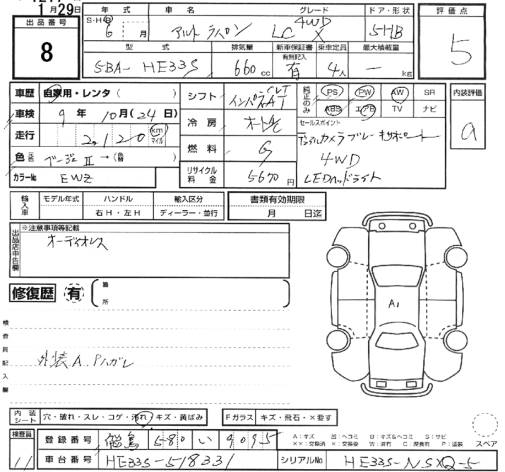 月29日
出品番号
8
年式 車名 グレード ドア・形状
S・H・R 6 月 アルトラパン 4WD LC X 5HB
型式 排気量 新車保証書 乗車定員 最大積載量
有無記入
5BA- HE33S 660cc 有 4人 ー kg
評価点
5
車歴 自家用・レンタ( )
車検 9年10月(24日)
走行 2,120 km マイル
色 ベージュⅡ→(替 )
カラーNo EWZ
シフト インパネCVT AT
冷房 オートAC
燃料 G
リサイクル料金 5670円
純正のみ PS PW AW SR
ABS エアB TV ナビ
セールスポイント
デュアルカメラブレーキサポート
4WD
LEDヘッドライト
内装評価
a
輸入車 モデル年式 ハンドル 輸入区分
右H・左H ディーラー・並行
書類有効期限
月 日迄
出品店申告欄
※注意事項等記載
オーディオレス
修復歴 有 箇所
検査員記入欄
外装A.Pハガレ
A1
内装シート 穴・破れ・スレ・コゲ・汚れ・キズ・黄ばみ
Fガラス キズ・飛石・×要す
スペア
検査員
11
登録番号 580 い 4095
車台番号 HE33S-518331
シリアルNo HE33S-NSXQ-5